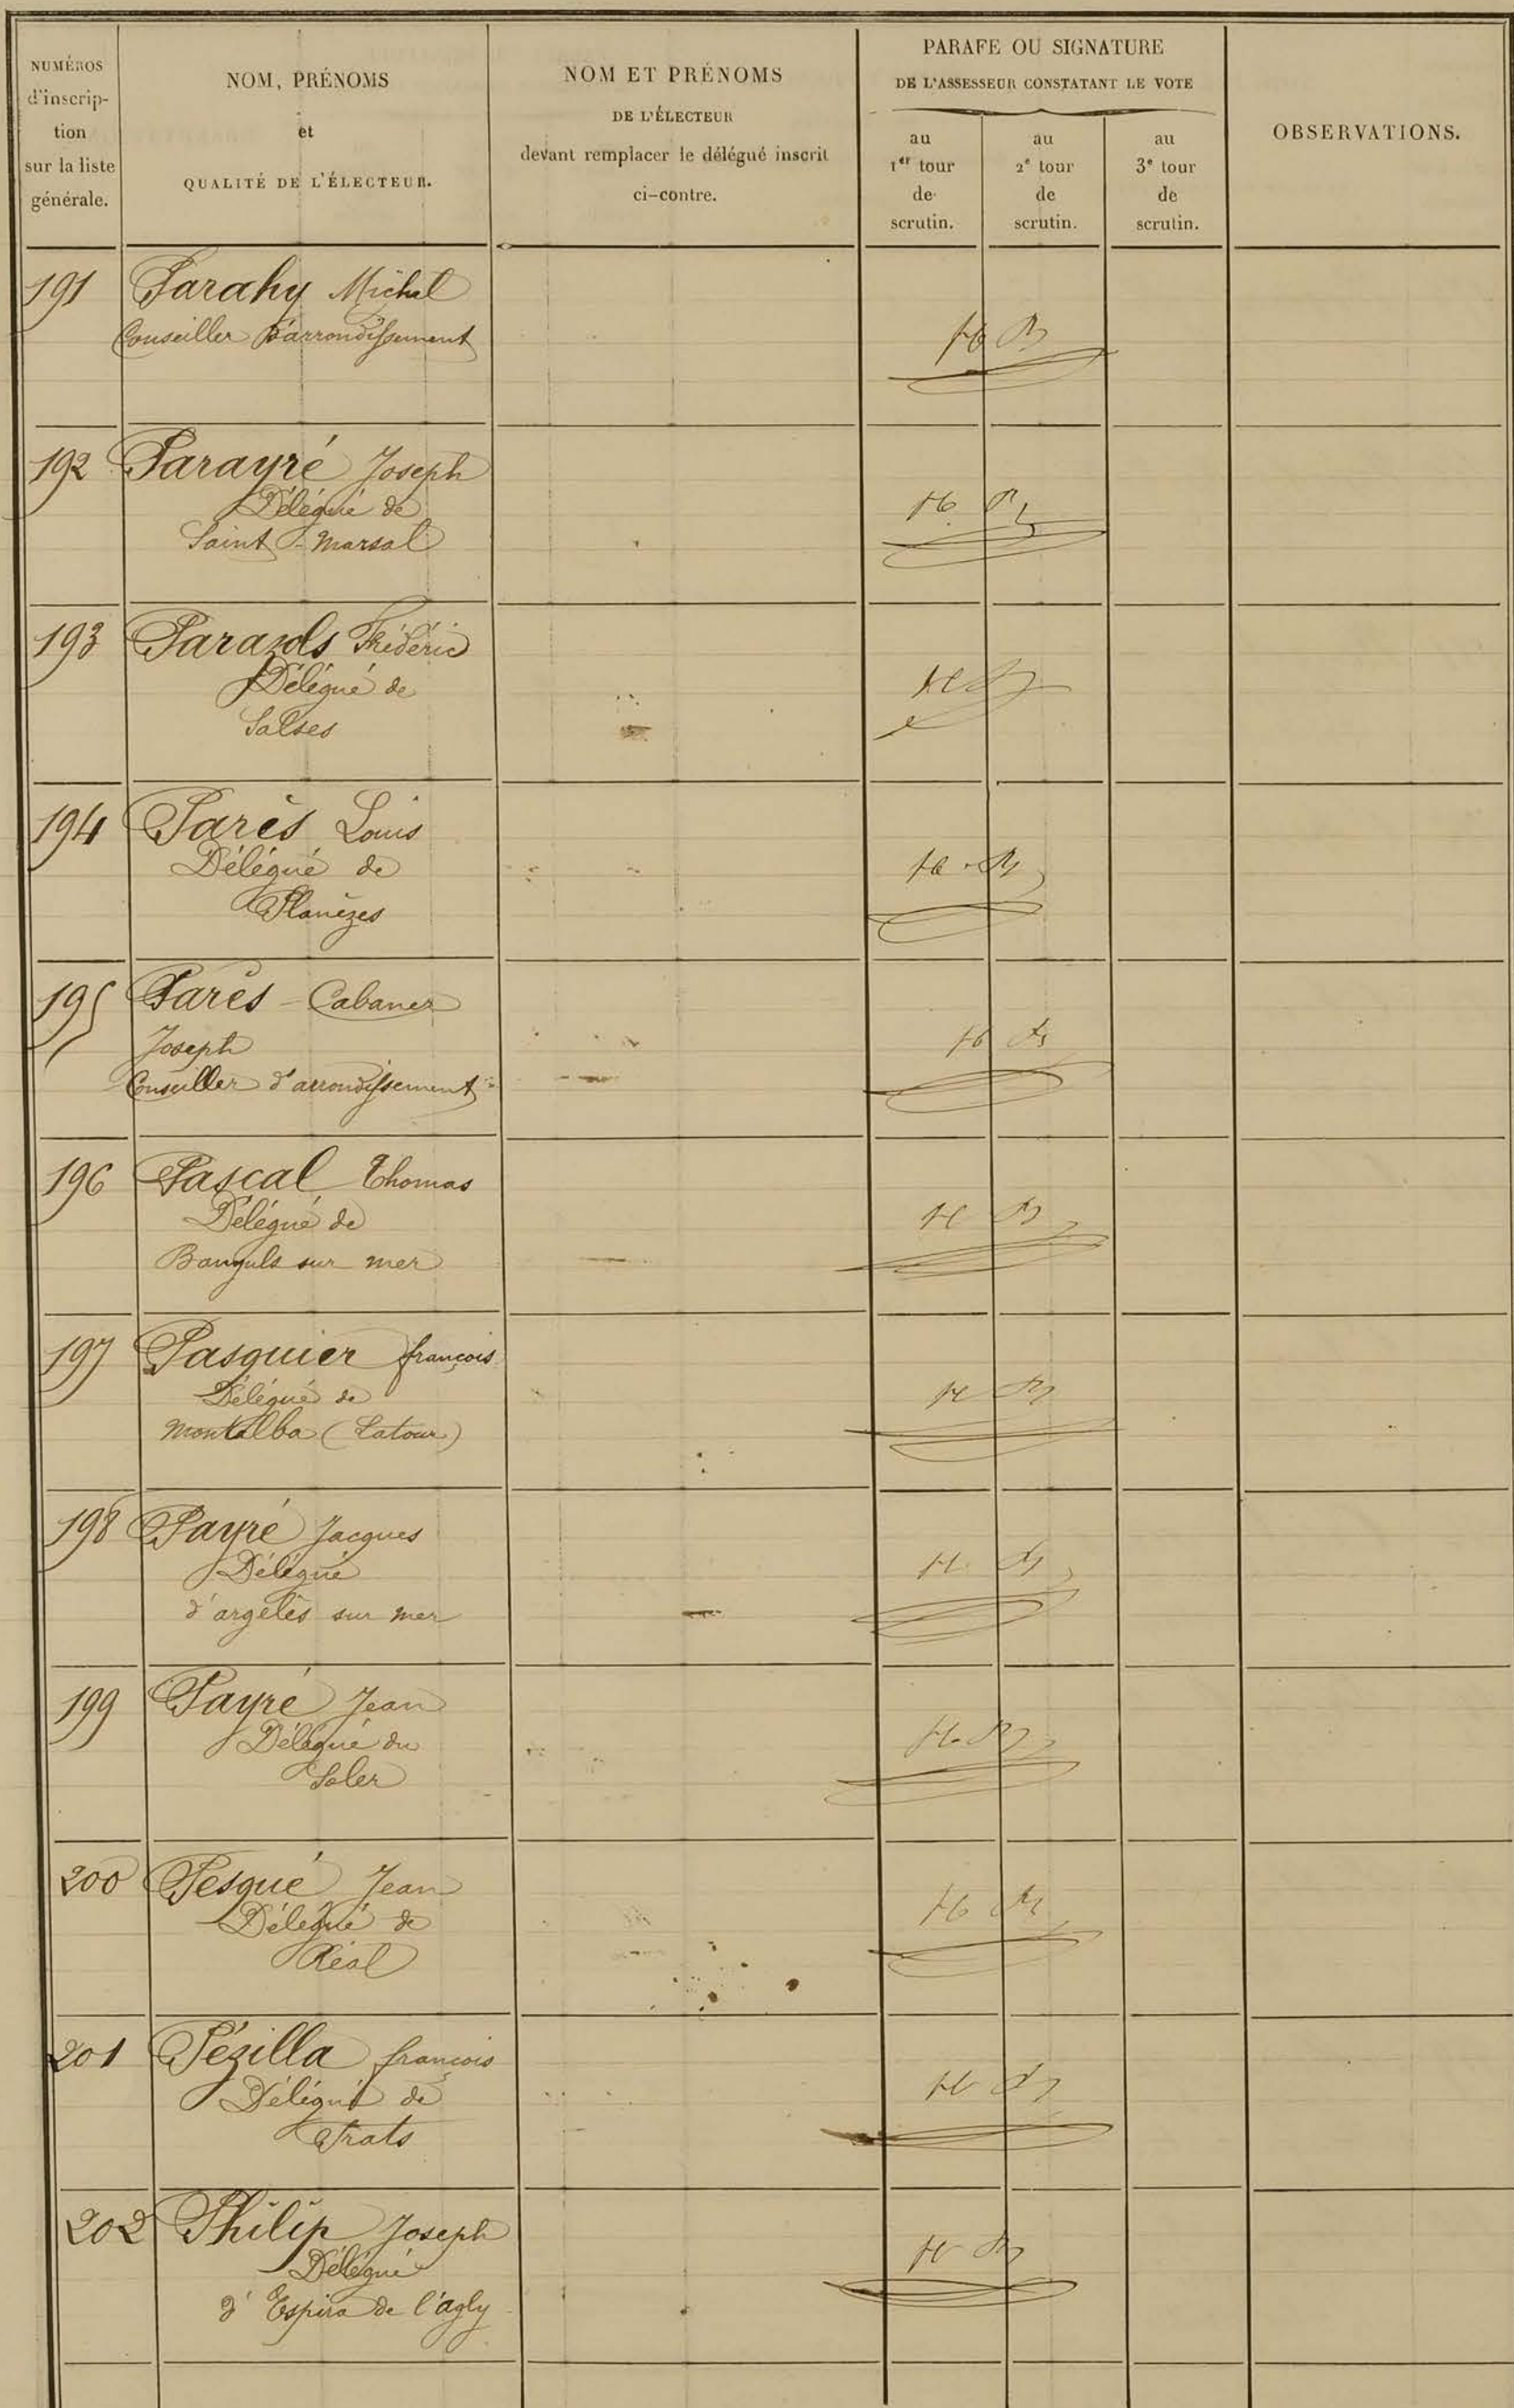 NUMÉROS
d'inscrip-
tion
sur la liste
générale.
NOM, PRÉNOMS
et
QUALITÉ DE L'ÉLECTEUR.
NOM ET PRÉNOMS
DE L'ÉLECTEUR
devant remplacer le délégué inscrit
ci-contre.
PARAFE OU SIGNATURE
DE L'ASSESSEUR CONSTATANT LE VOTE
au
1er tour
de
scrutin.
au
2e tour
de
scrutin.
au
3e tour
de
scrutin.
OBSERVATIONS.
191 Parahy Michel
Conseiller d'arrondissement
192 Parayré Joseph
Délégué de
Saint-Marsal
193 Parazols Frédéric
Délégué de
Salses
194 Parès Louis
Délégué de
Planèzes
195 Parès-Cabaner
Joseph
Conseiller d'arrondissement
196 Pascal Thomas
Délégué de
Banyuls sur mer
197 Pasquier françois
Délégué de
Montalba (Latour)
198 Payré Jacques
Délégué
d'argelès sur mer
199 Payré Jean
Délégué du
Soler
200 Pesqué Jean
Délégué de
Réal
201 Pézilla françois
Délégué de
Trats
202 Philip Joseph
Délégué
d'Espira de l'agly